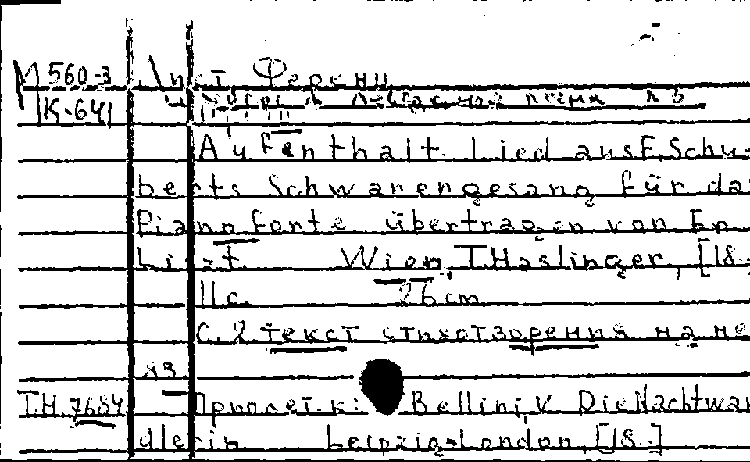 М 560-3 Лист, Ференц
К-641
Aufenthalt. Lied aus F. Schu-
berts Schwanengesang für das
Pianoforte übertragen von Fr.
Liszt. Wien, T. Haslinger, [18-
11 с. 26 cm
С. 2 текст стихотворения на не
яз
Т.Н. 7684 Приплет. к: Bellini, V. Die Nachtwan
dlerin Leipzig-London, [18-]